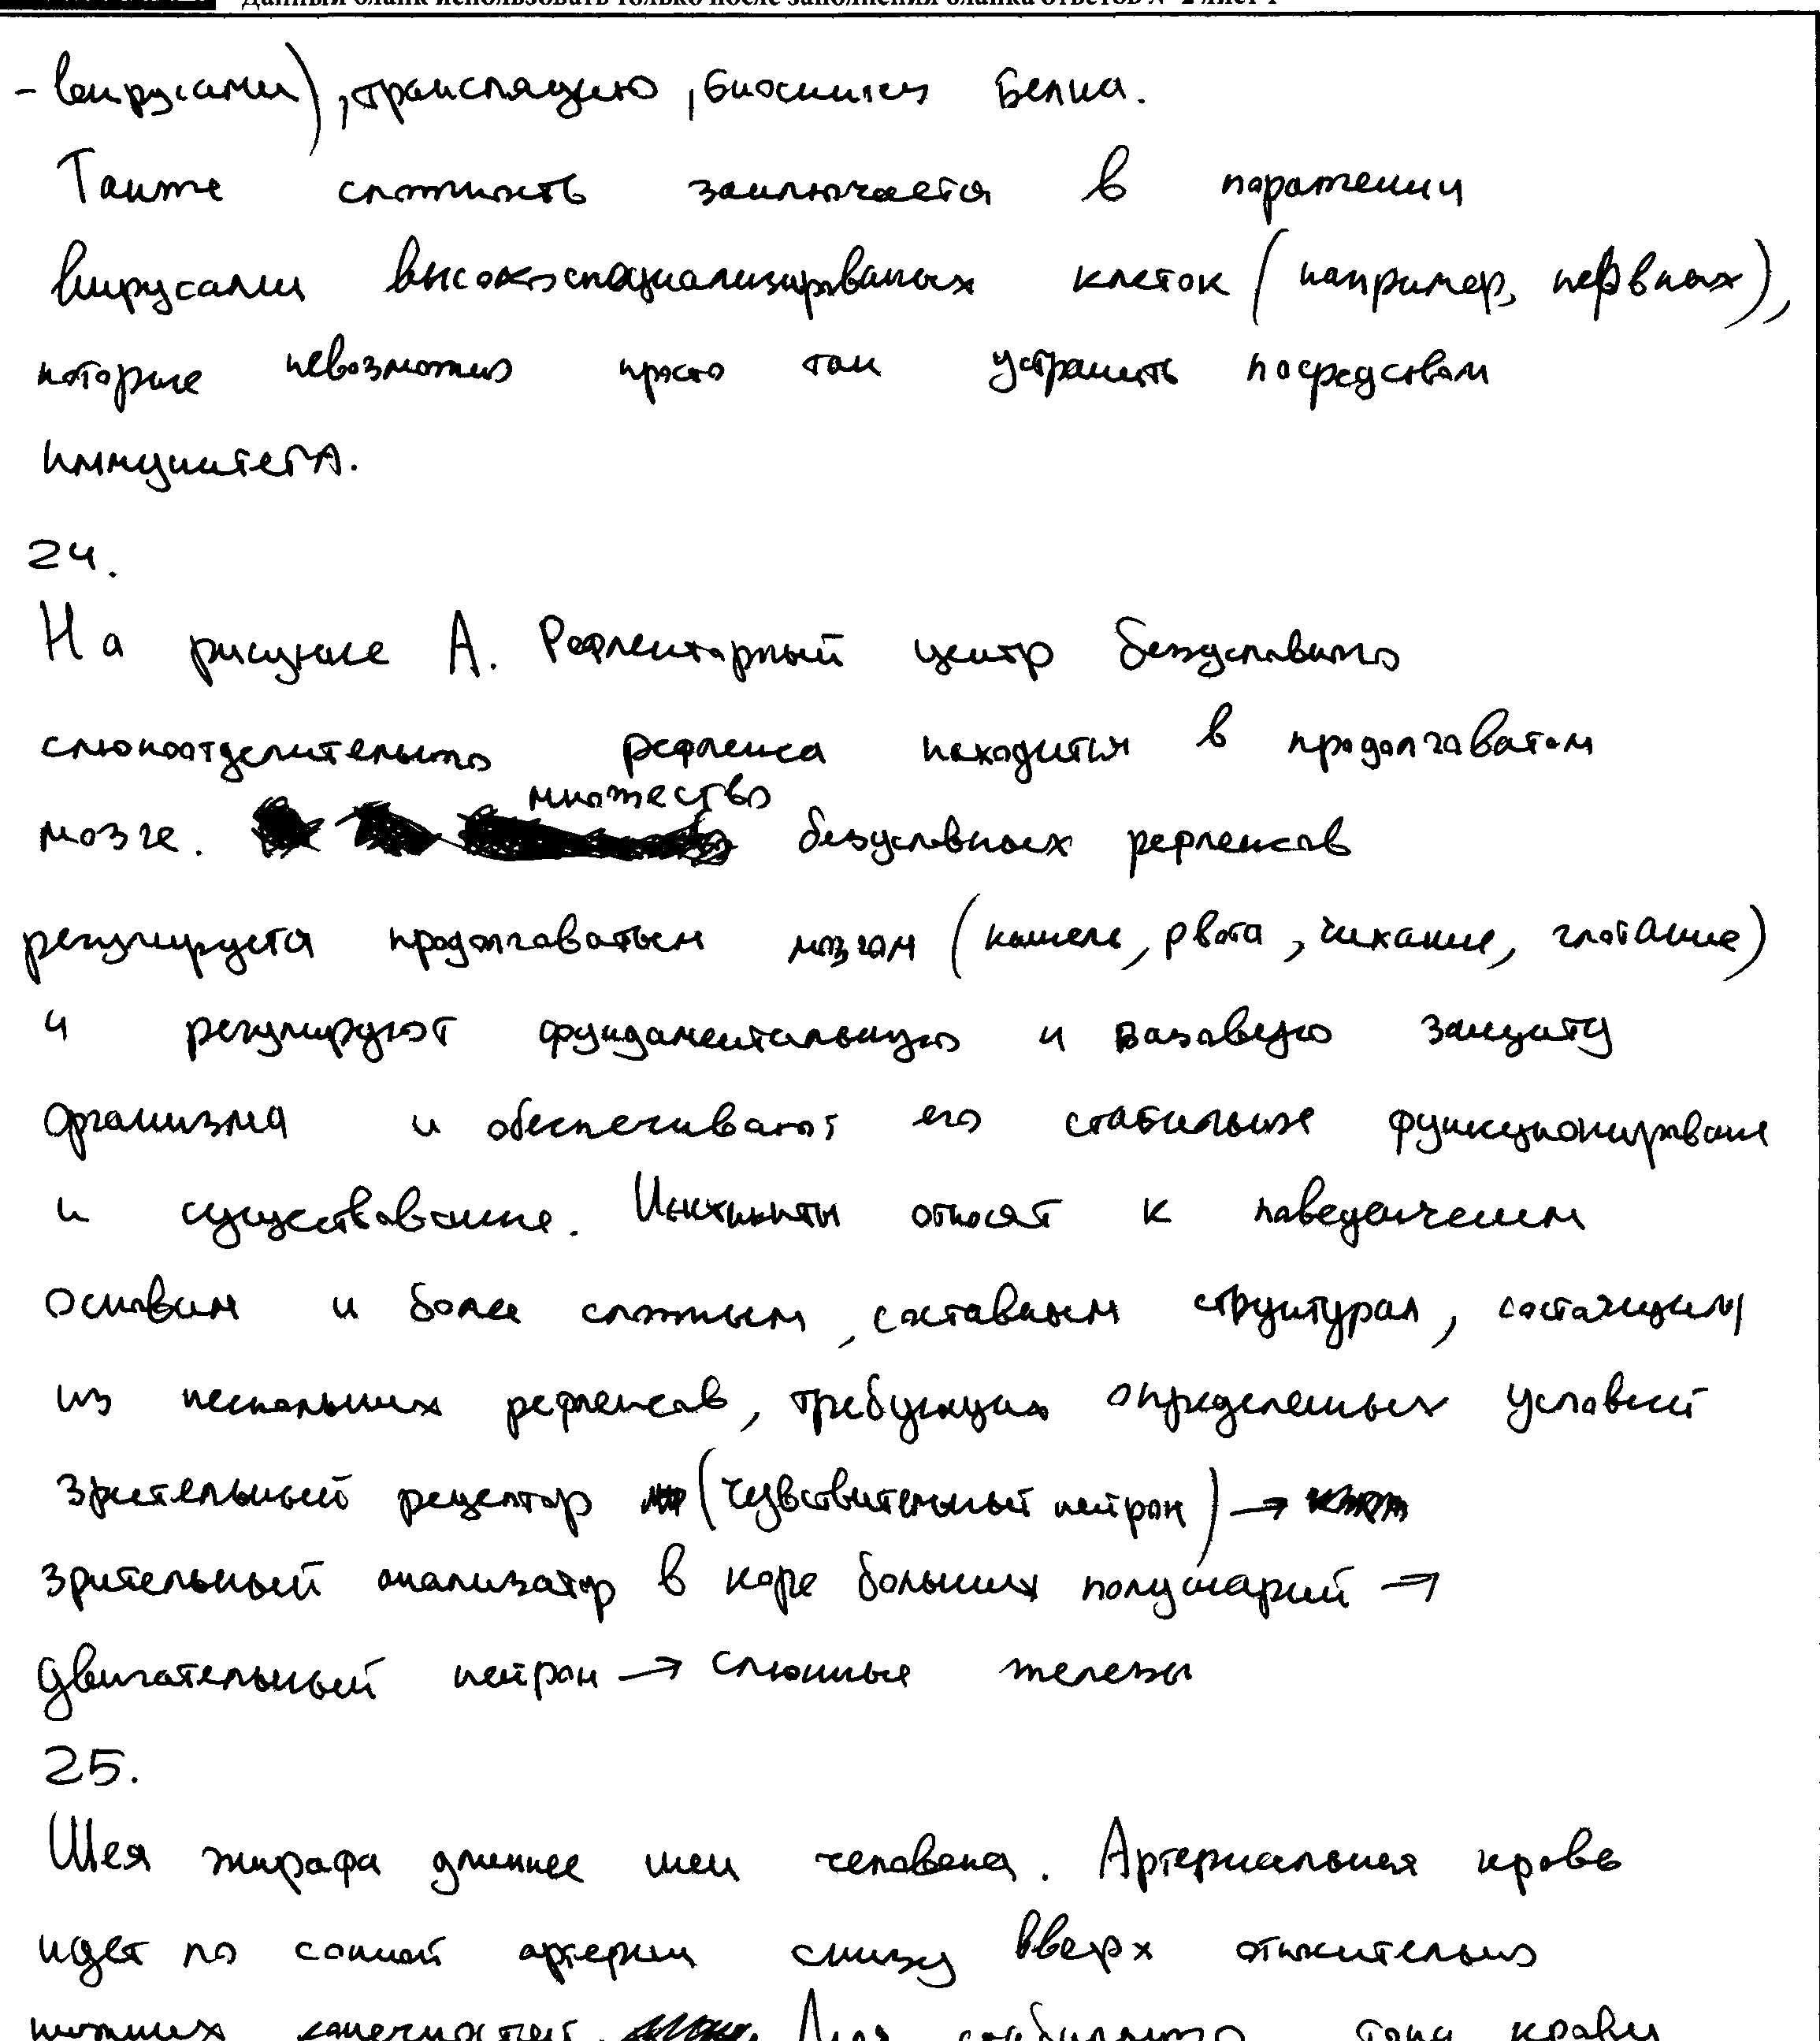 Данный бланк использовать только после заполнения бланка ответов № 2 лист 1
- вирусами), трансляцию, биосинтез белка.
Также сложность заключается в поражении
вирусами высокоспециализированных клеток (например, нервных),
которые невозможно просто так устранить посредством
иммунитета.
24.
На рисунке А. Рефлекторный центр безусловного
слюноотделительного рефлекса находится в продолговатом
мозге. множество безусловных рефлексов
регулируется продолговатым мозгом (кашель, рвота, чихание, глотание)
и регулируют фундаментальную и базовую защиту
организма и обеспечивают его стабильное функционирование
и существование. Инстинкты относят к поведенческим
основам и более сложным, составным структурам, состоящим
из нескольких рефлексов, требующих определенных условий
зрительный рецептор (чувствительный нейрон) →
зрительный анализатор в коре больших полушарий →
двигательный нейрон → слюнные железы
25.
Шея жирафа длиннее шеи человека. Артериальная кровь
идет по сонной артерии снизу вверх относительно
нижних конечностей. Для стабильного тока крови